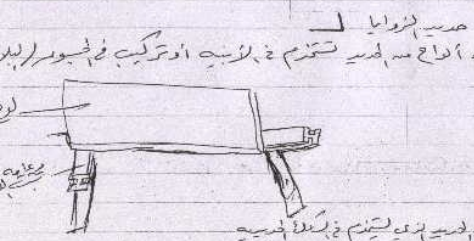 حديد الزوايا
ألواح من الحديد تستخدم في الأبنية أو تركيب في الجسور (البلا
لو
دعامة
الحديد الذي يستخدم في السكك الحديدية